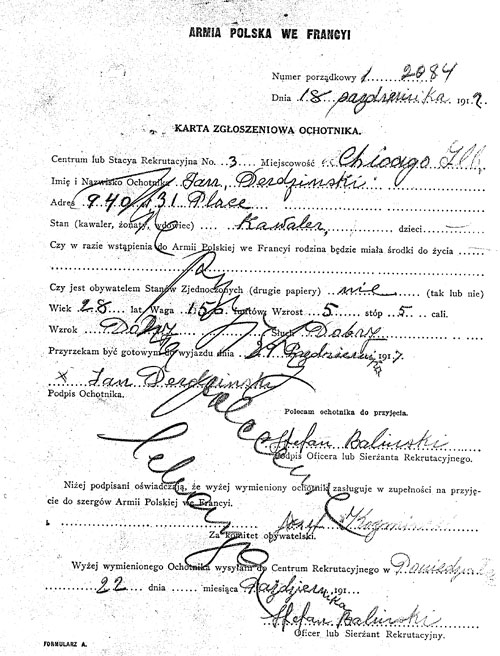 ARMIA POLSKA WE FRANCYI
Numer porządkowy 1 2084
Dnia 18 pazdziernika 1917.
KARTA ZGŁOSZENIOWA OCHOTNIKA.
Centrum lub Stacya Rekrutacyjna No. 3 Miejscowość Chicago Ill,
Imię i Nazwisko Ochotnika Jan, Derdzinski
Adres 940 131 Place
Stan (kawaler, żonaty, wdowiec) Kawaler, dzieci
Czy w razie wstąpienia do Armii Polskiej we Francyi rodzina będzie miała środki do życia
Czy jest obywatelem Stanów Zjednoczonych (drugie papiery) nie (tak lub nie)
Wiek 28 lat Waga 156 funtów Wzrost 5 stóp 5 cali.
Wzrok Dobry Słuch Dobry
Przyrzekam być gotowym do wyjazdu dnia 21 Pazdziernika 1917.
x Jan Derdzinski
Podpis Ochotnika.
Polecam ochotnika do przyjęcia.
Stefan Balinski
Podpis Oficera lub Sierżanta Rekrutacyjnego.
Niżej podpisani oświadczają, że wyżej wymieniony ochotnik zasługuje w zupełności na przyję-
cie do szergów Armii Polskiej we Francyi.
Józef
Za komitet obywatelski.
Wyżej wymienionego Ochotnika wysyłam do Centrum Rekrutacyjnego w
22 dnia miesiąca Października 191
Stefan Balinski
Oficer lub Sierżant Rekrutacyjny.
FORMULARZ A.